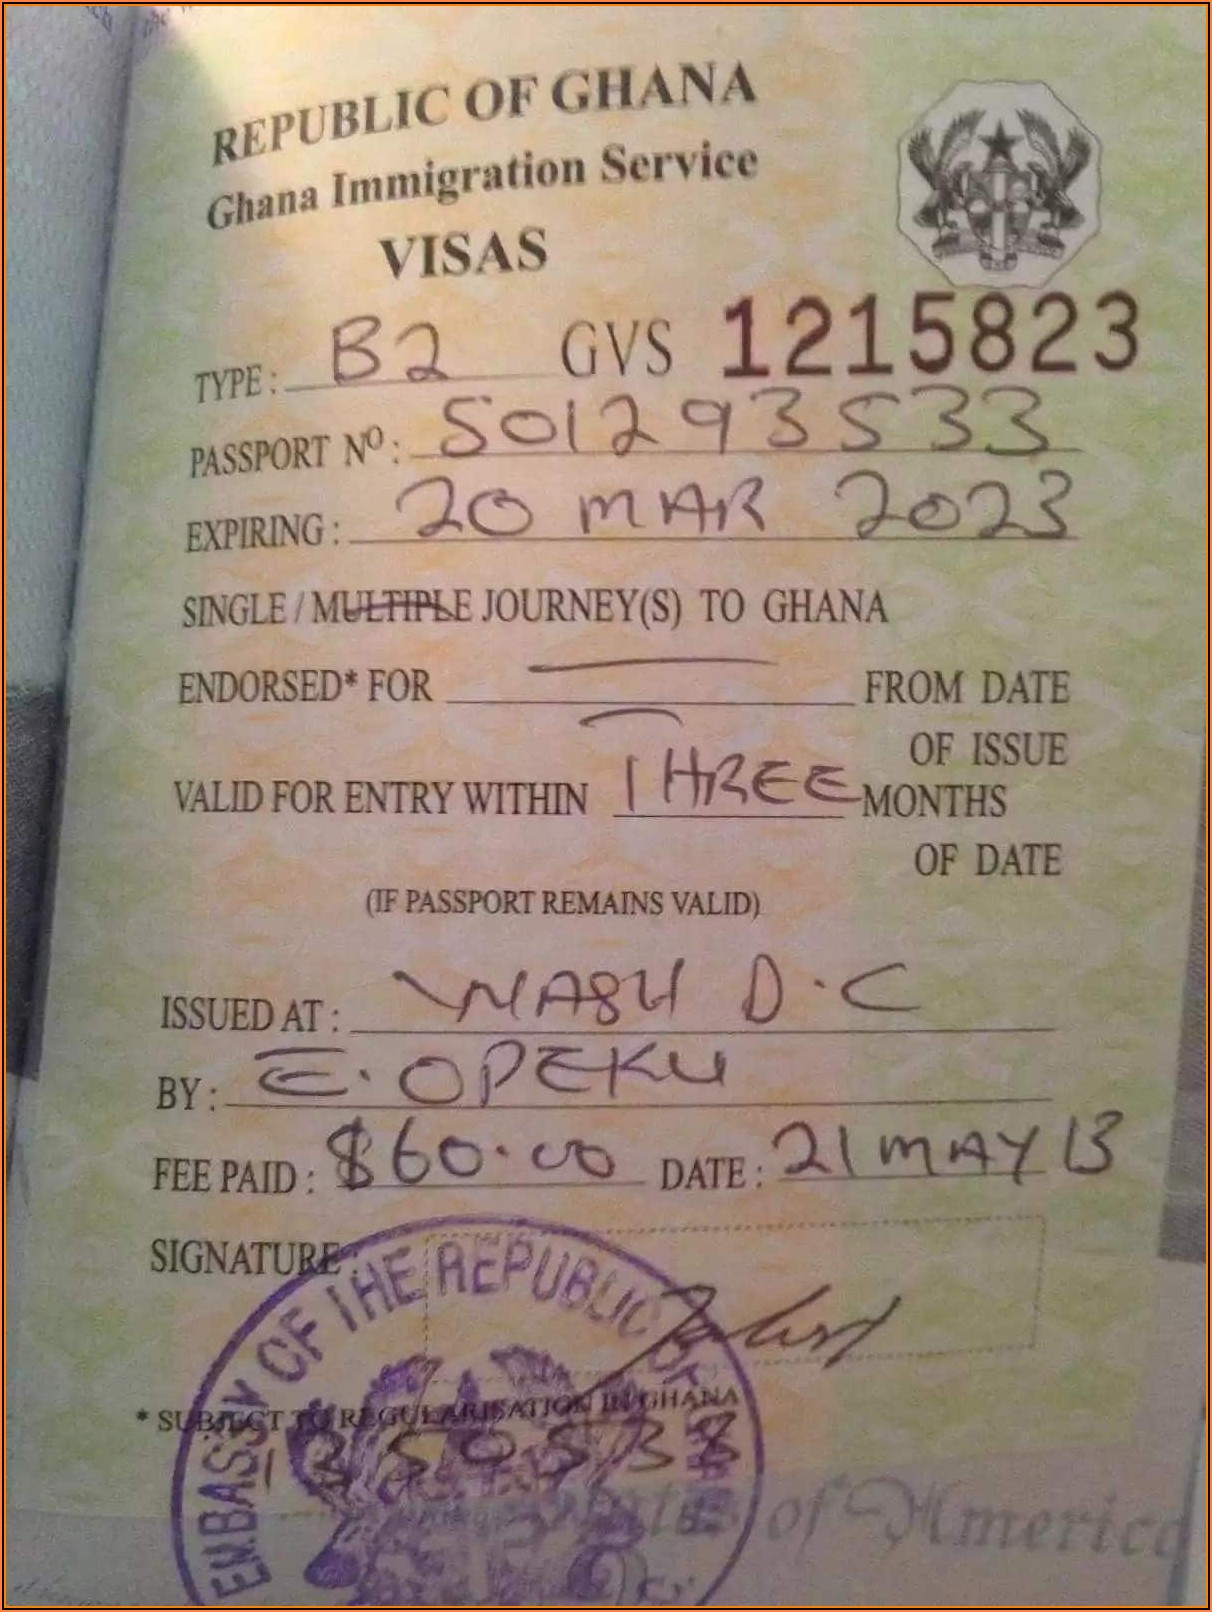 REPUBLIC OF GHANA
Ghana Immigration Service
VISAS
TYPE: B2 GVS 1215823
PASSPORT Nº: 501293533
EXPIRING: 20 MAR 2023
SINGLE / MULTIPLE JOURNEY(S) TO GHANA
ENDORSED* FOR FROM DATE
OF ISSUE
VALID FOR ENTRY WITHIN THREE MONTHS
OF DATE
(IF PASSPORT REMAINS VALID)
ISSUED AT: WASH D.C
BY: E. OPEKU
FEE PAID: $60.00 DATE: 21 MAY 13
SIGNATURE:
EMBASSY OF THE REPUBLIC OF
* SUBJECT TO REGULARISATION IN GHANA
of America